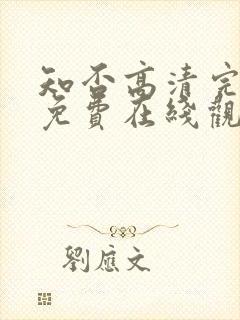 知否高清完
免費在綫觀
劉應文